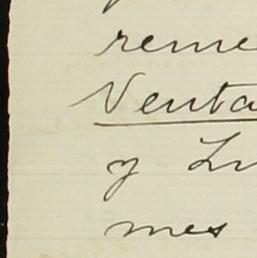 reme
Venta
y Lu
mes